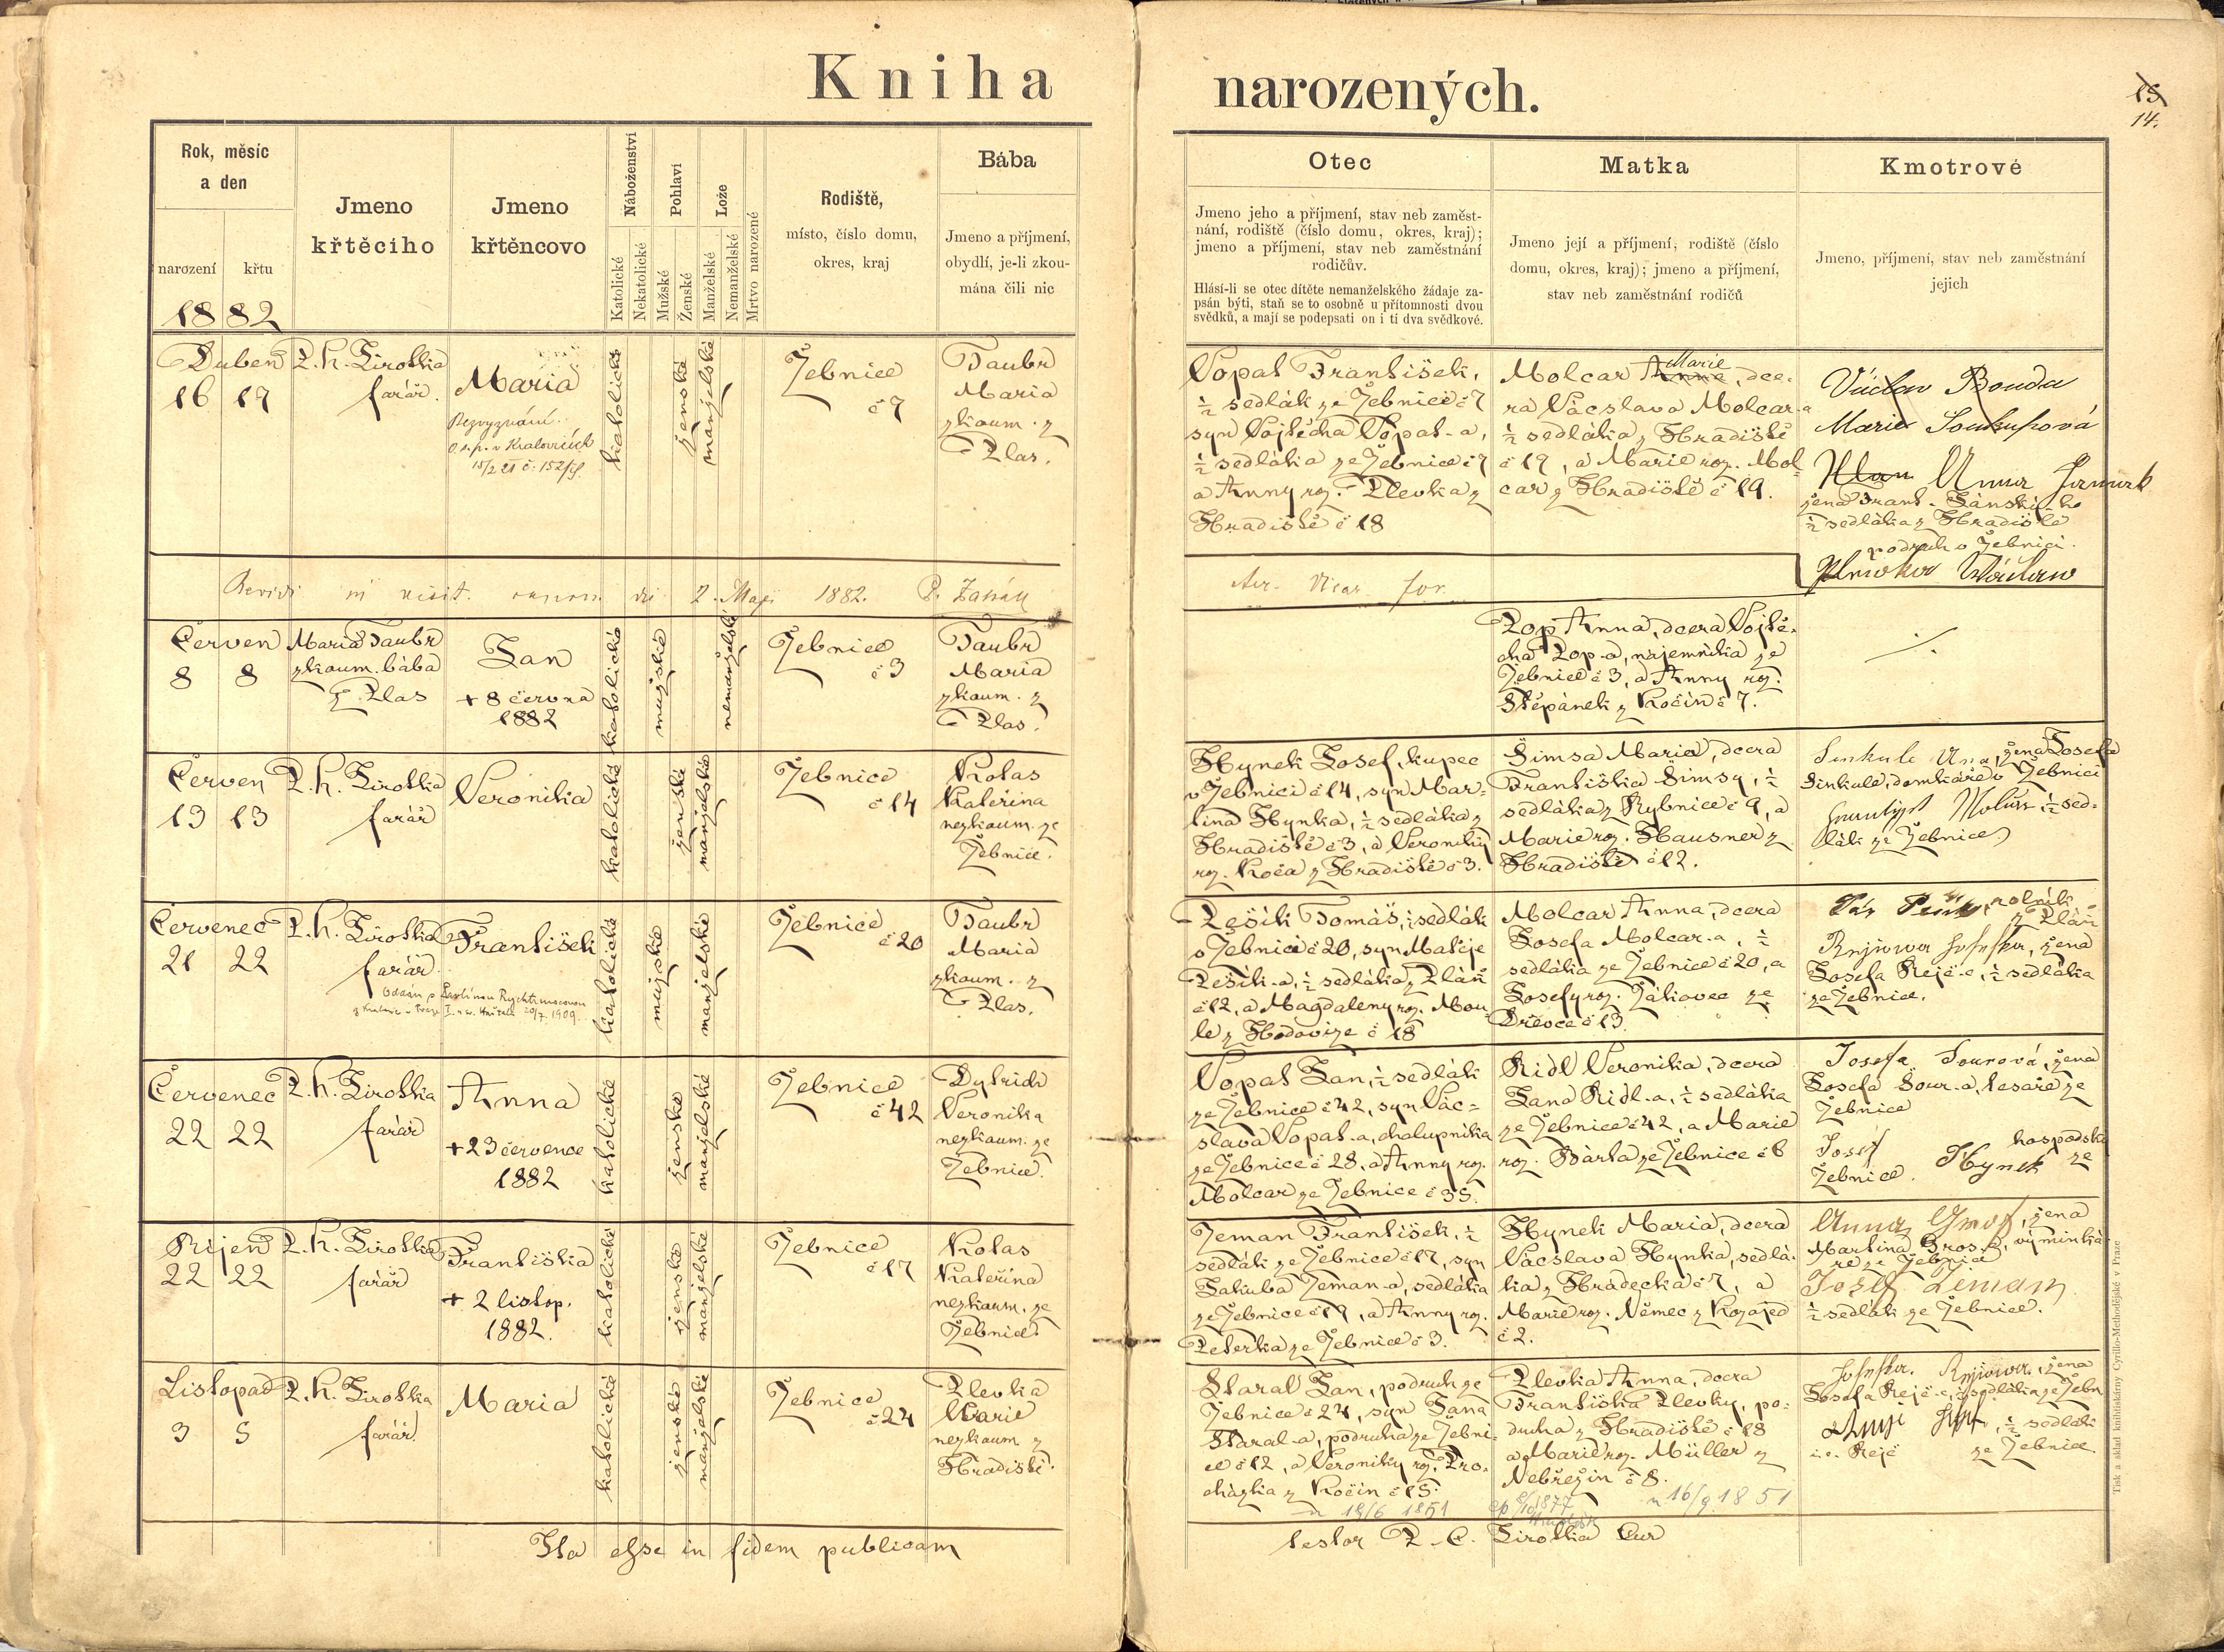 Kniha narozených.
15
14.
Rok, měsíc
a den
narození
křtu
1882
Jmeno
křtěcího
Jmeno
křtěncovo
Náboženství
Katolické
Nekatolické
Pohlaví
Mužské
Ženské
Lože
Manželské
Nemanželské
Mrtvo narozené
Rodiště,
místo, číslo domu,
okres, kraj
Bába
Jmeno a příjmení,
obydlí, je-li zkou-
mána čili nic
Otec
Jmeno jeho a příjmení, stav neb zaměst-
nání, rodiště (číslo domu, okres, kraj);
jmeno a příjmení, stav neb zaměstnání
rodičův.
Hlásí-li se otec dítěte nemanželského žádaje za-
psán býti, staň se to osobně u přítomnosti dvou
svědků, a mají se podepsati on i ti dva svědkové.
Matka
Jmeno její a příjmení, rodiště (číslo
domu, okres, kraj); jmeno a příjmení,
stav neb zaměstnání rodičů
Kmotrové
Jmeno, příjmení, stav neb zaměstnání
jejich
Duben
16 17
P. H. Sirotka
farář.
Maria
Bezvyznání.
v Kralovicích
katolické
ženské
manželské
Žebnice
č 7
Taubr
Maria
zkoum. z
Plas.
Vopat František,
½ sedlák ze Žebnice č 7
syn Vojtěcha Vopat-a,
½ sedláka ze Žebnice č 7
a Anny roz. Plevka z
Hradiště č 18
Molcar Anna Marie, dce-
ra Václava Molcar-a
½ sedláka z Hradiště
č 19, a Marie roz. Mol-
car z Hradiště č 19.
Václav Bouda
Marie Soukupová
Anna
žena Frant.
½ sedláka z Hradiště
podruh v Žebnici.
Plewka Wáclaw
Revidi in visit. canon. die 2. Maji 1882.
Vicar. for.
Červen
8 8
Maria Taubr
zkoum. bába
z Plas
Jan
+ 8 června
1882
katolické
mužské
nemanželské
Žebnice
č 3
Taubr
Maria
zkoum. z
Plas.
Pop Anna, dcera Vojtě-
cha Pop-a, nájemníka ze
Žebnice č 3, a Anny roz.
Štěpánek z Kočín č 7.
Červen
13 13
P. H. Sirotka
farář
Veronika
katolické
ženské
manželské
Žebnice
č 14
Kolas
Kateřina
nezkoum. ze
Žebnice.
Hynek Josef, kupec
v Žebnici č 14, syn Mar-
tina Hynka, ½ sedláka z
Hradiště č 3, a Veroniky
roz. Koča z Hradiště č 3.
Šimsa Marie, dcera
Františka Šimsy, ½
sedláka z Rybnice č 9, a
Marie roz. Hausner z
Hradiště č 12.
Sinkule Ana, žena Josefa
Sinkule, domkáře v Žebnici
½ sed-
lák ze Žebnice
Červenec
21 22
P. H. Sirotka
farář
František
Oddán s
20/7. 1909.
katolické
mužské
manželské
Žebnice
č 20
Taubr
Maria
zkoum. z
Plas.
Pešík Tomáš, ½ sedlák
v Žebnici č 20, syn Matěje
Pešík-a, ½ sedláka z Pláň
č 12, a Magdaleny roz. Mou-
le z Hodovize č 18
Molcar Anna, dcera
Josefa Molcar-a, ½
sedláka ze Žebnice č 20, a
Josefy roz. Žákovec ze
Dřevce č 13.
rolník
z Pláň
žena
Josefa Rejž-e, ½ sedláka
ze Žebnice.
Červenec
22 22
P. H. Sirotka
farář
Anna
+ 23 července
1882
katolické
ženské
manželské
Žebnice
č 42
Dytrich
Veronika
nezkoum. ze
Žebnice.
Vopat Jan, ½ sedlák
ze Žebnice č 42, syn Vác-
slava Vopat-a, chalupníka
ze Žebnice č 28, a Anny roz.
Molcar ze Žebnice č 35.
Ridl Veronika, dcera
Jana Ridl-a, ½ sedláka
ze Žebnice č 42, a Marie
roz. Bárta ze Žebnice č 6
Josefa Sourová, žena
Josefa Sour-a, tesaře ze
Žebnice
Josef Hynek hospodský ze
Žebnice.
Říjen
22 22
P. H. Sirotka
farář
Františka
+ 2 listop.
1882.
katolické
ženské
manželské
Žebnice
č 17
Kolas
Kateřina
nezkoum. ze
Žebnice
Zeman František, ½
sedlák ze Žebnice č 17, syn
Jakuba Zeman-a, sedláka
ze Žebnice č 17, a Anny roz.
Peterka ze Žebnice č 3.
Hynek Maria, dcera
Václava Hynka, sedlá-
ka z Hradecka č 7, a
Marie roz. Němec z Kozojed
č 2.
Anna Gros, žena
Martina Gros-a, výminká-
ře ze Žebnice
Josef Zeman
½ sedlák ze Žebnice.
Listopad
3 5
P. H. Sirotka
farář.
Maria
katolické
ženské
manželské
Žebnice
č 24
Plevka
Marie
nezkoum z
Hradiště.
Staral Jan, podruh ze
Žebnice č 24, syn Jana
Staral-a, podruha ze Žebni-
ce č 12, a Veroniky roz. Pro-
cházka z Kočín č 15.
Plevka Anna, dcera
Františka Plevky, po-
druha z Hradiště č 18
a Marie roz. Müller z
Nebřežin č 8.
n 16/9 1851
žena
Josefa Rejž-e, ½ sedláka ze Žebn
½ sedlák
i. e. Rejž ze Žebnice.
Ita esse in fidem publicam
testor P. C. Sirotka Cur
Tisk a sklad knihtiskárny Cyrillo-Methodějské v Praze